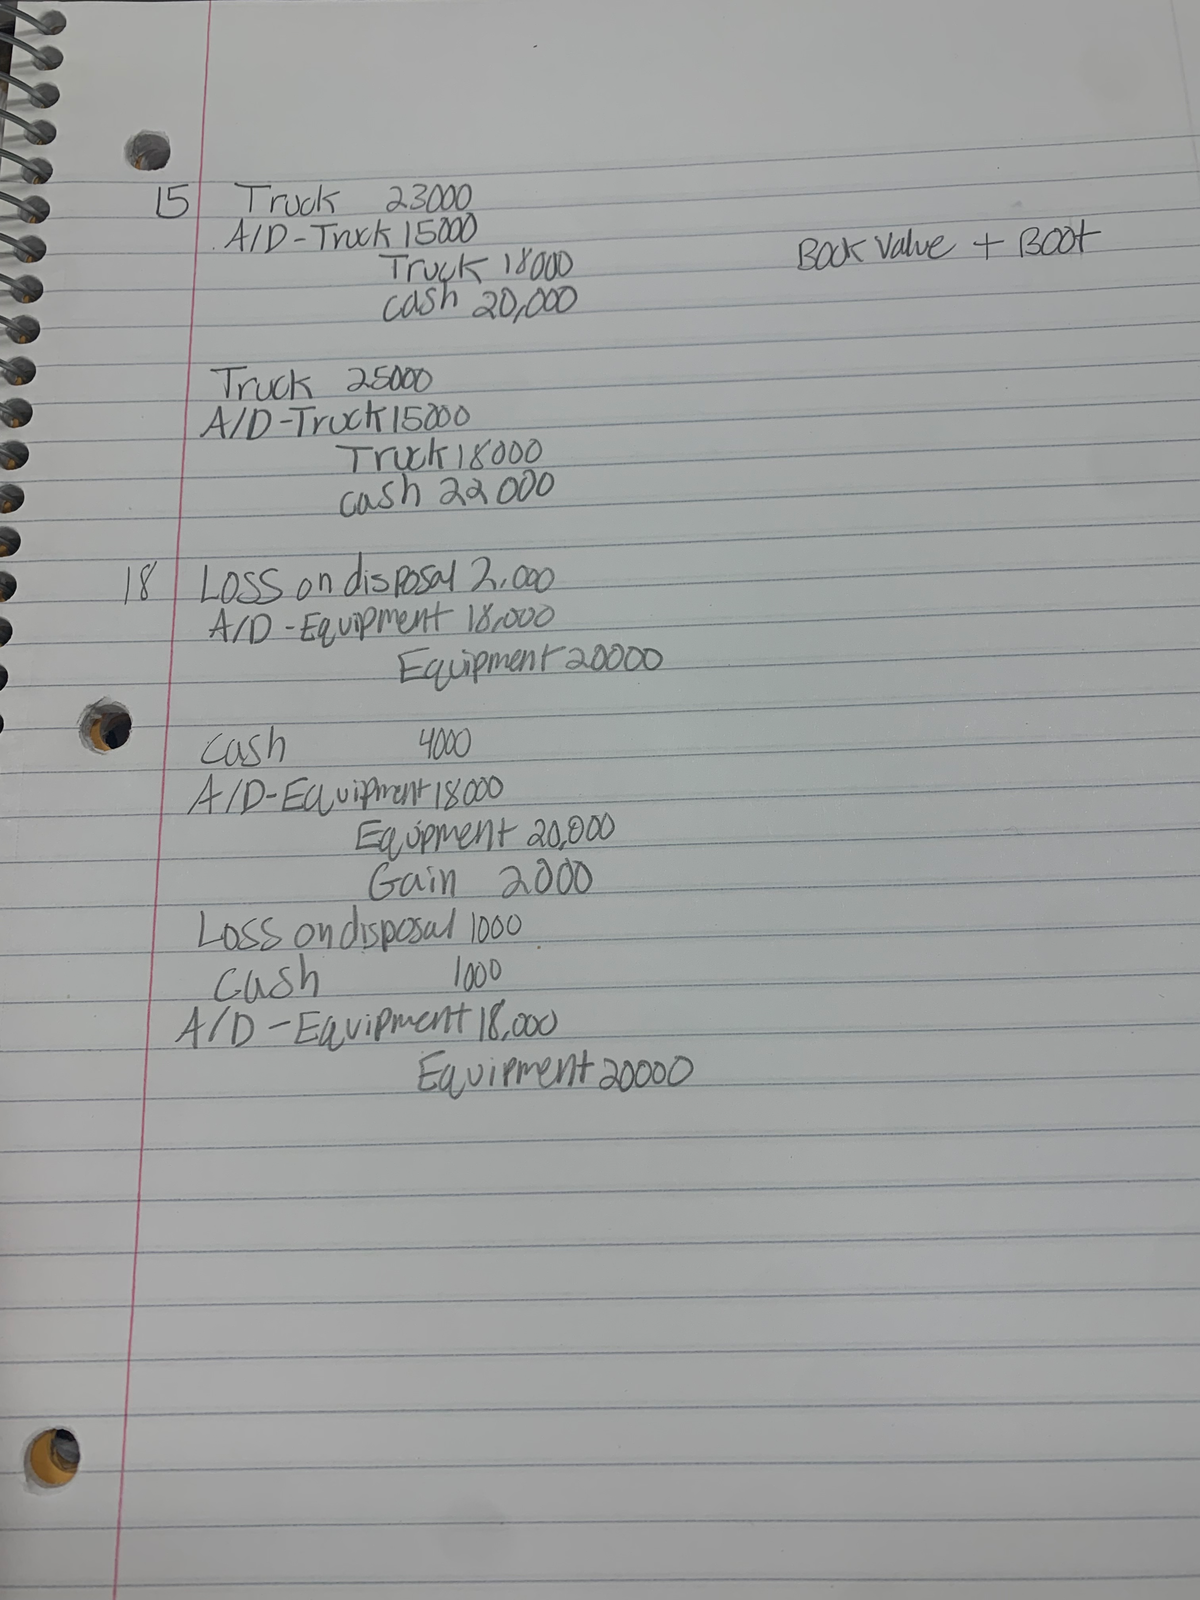 15 Truck 23000
A/D-Truck 15000
Book Value + Boot
Truck 18000
cash 20,000
Truck 25000
A/D-Truck 15000
Truck 18000
cash 22000
18 Loss on disposal 2,000
A/D-Equipment 18,000
Equipment 20000
cash 4000
A/D-Equipment 18000
Equipment 20,000
Gain 2000
Loss on disposal 1000
Cash 1000
A/D-Equipment 18,000
Equipment 20000